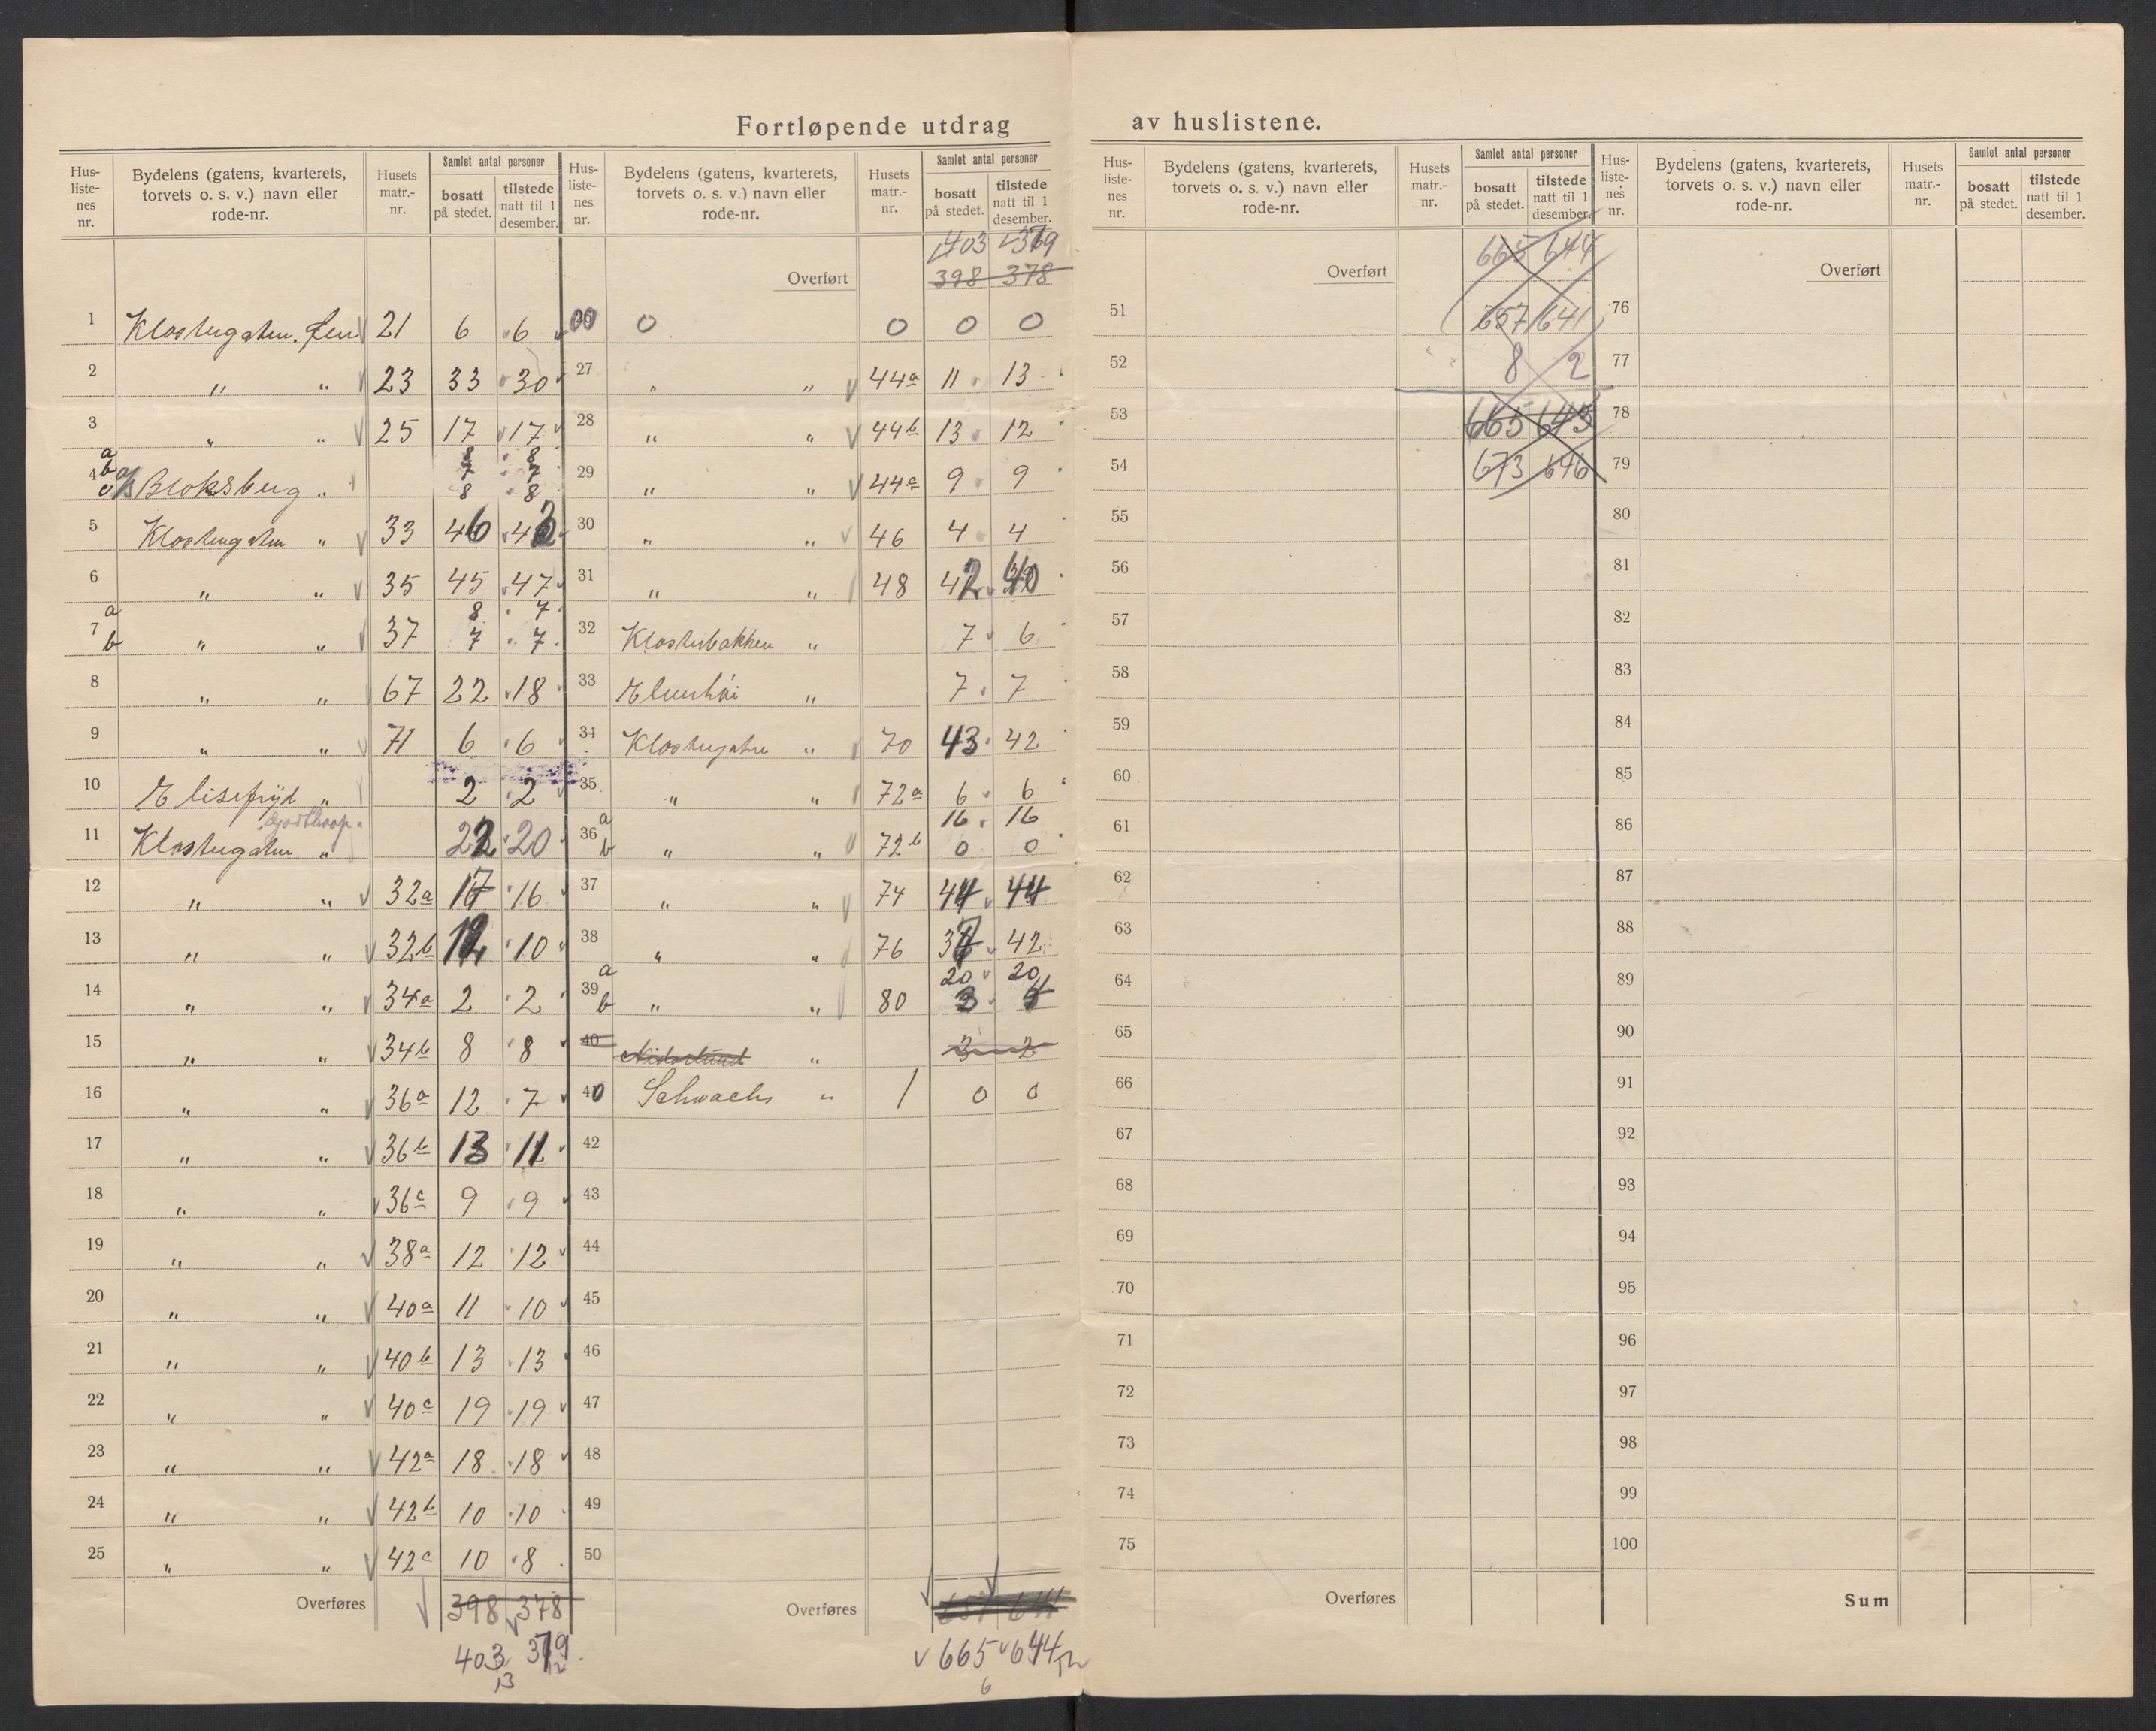 Fortløpende utdrag av huslistene.
Hus-liste-nes nr. Bydelens (gatens, kvarterets, torvets o. s. v.) navn eller rode-nr. Husets matr.-nr. Samlet antal personer bosatt på stedet. tilstede natt til 1 desember.
1 Klostergaten. 21 6 6
2 " " 23 33 30
3 " " 25 17 17
4 a 8 8
b 7 7
c Bloksberg " 8 8
5 Klostergaten " 33 46 43
6 " " 35 45 47
7 a 8 7
b " " 37 7 7
8 " " 67 22 18
9 " " 71 6 6
10 Elisefryd " 2 2
11 Klostergaten " 22 20
12 " " 32a 17 16
13 " " 32b 12 10
14 " " 34a 2 2
15 " " 34b 8 8
16 " " 36a 12 7
17 " " 36b 13 11
18 " " 36c 9 9
19 " " 38a 12 12
20 " " 40a 11 10
21 " " 40b 13 13
22 " " 40c 19 19
23 " " 42a 18 18
24 " " 42b 10 10
25 " " 42c 10 8
Overføres 398 378
403 379
13 12
Hus-liste-nes nr. Bydelens (gatens, kvarterets, torvets o. s. v.) navn eller rode-nr. Husets matr.-nr. Samlet antal personer bosatt på stedet. tilstede natt til 1 desember.
403 379
Overført 398 378
0 0 0 0
27 " " 44a 11 13
28 " " 44b 13 12
29 " " 44c 9 9
30 " " 46 4 4
31 " " 48 42 40
32 Klosterbakken " 7 6
33 " 7 7
34 Klostergaten " 70 43 42
35 " " 72a 6 6
36 a 16 16
b " " 72b 0 0
37 " " 74 44 44
38 " " 76 37 42
39 a 20 20
b " " 80 3 4
40 " 3 2
40 Schwachs " 1 0 0
42
43
44
45
46
47
48
49
50
Overføres 657 641
665 644
6 12
Hus-liste-nes nr. Bydelens (gatens, kvarterets, torvets o. s. v.) navn eller rode-nr. Husets matr.-nr. Samlet antal personer bosatt på stedet. tilstede natt til 1 desember.
Overført 665 644
51 657 641
52 8 2
53 665 643
54 673 646
55
56
57
58
59
60
61
62
63
64
65
66
67
68
69
70
71
72
73
74
75
Overføres
Hus-liste-nes nr. Bydelens (gatens, kvarterets, torvets o. s. v.) navn eller rode-nr. Husets matr.-nr. Samlet antal personer bosatt på stedet. tilstede natt til 1 desember.
Overført
76
77
78
79
80
81
82
83
84
85
86
87
88
89
90
91
92
93
94
95
96
97
98
99
100
Sum